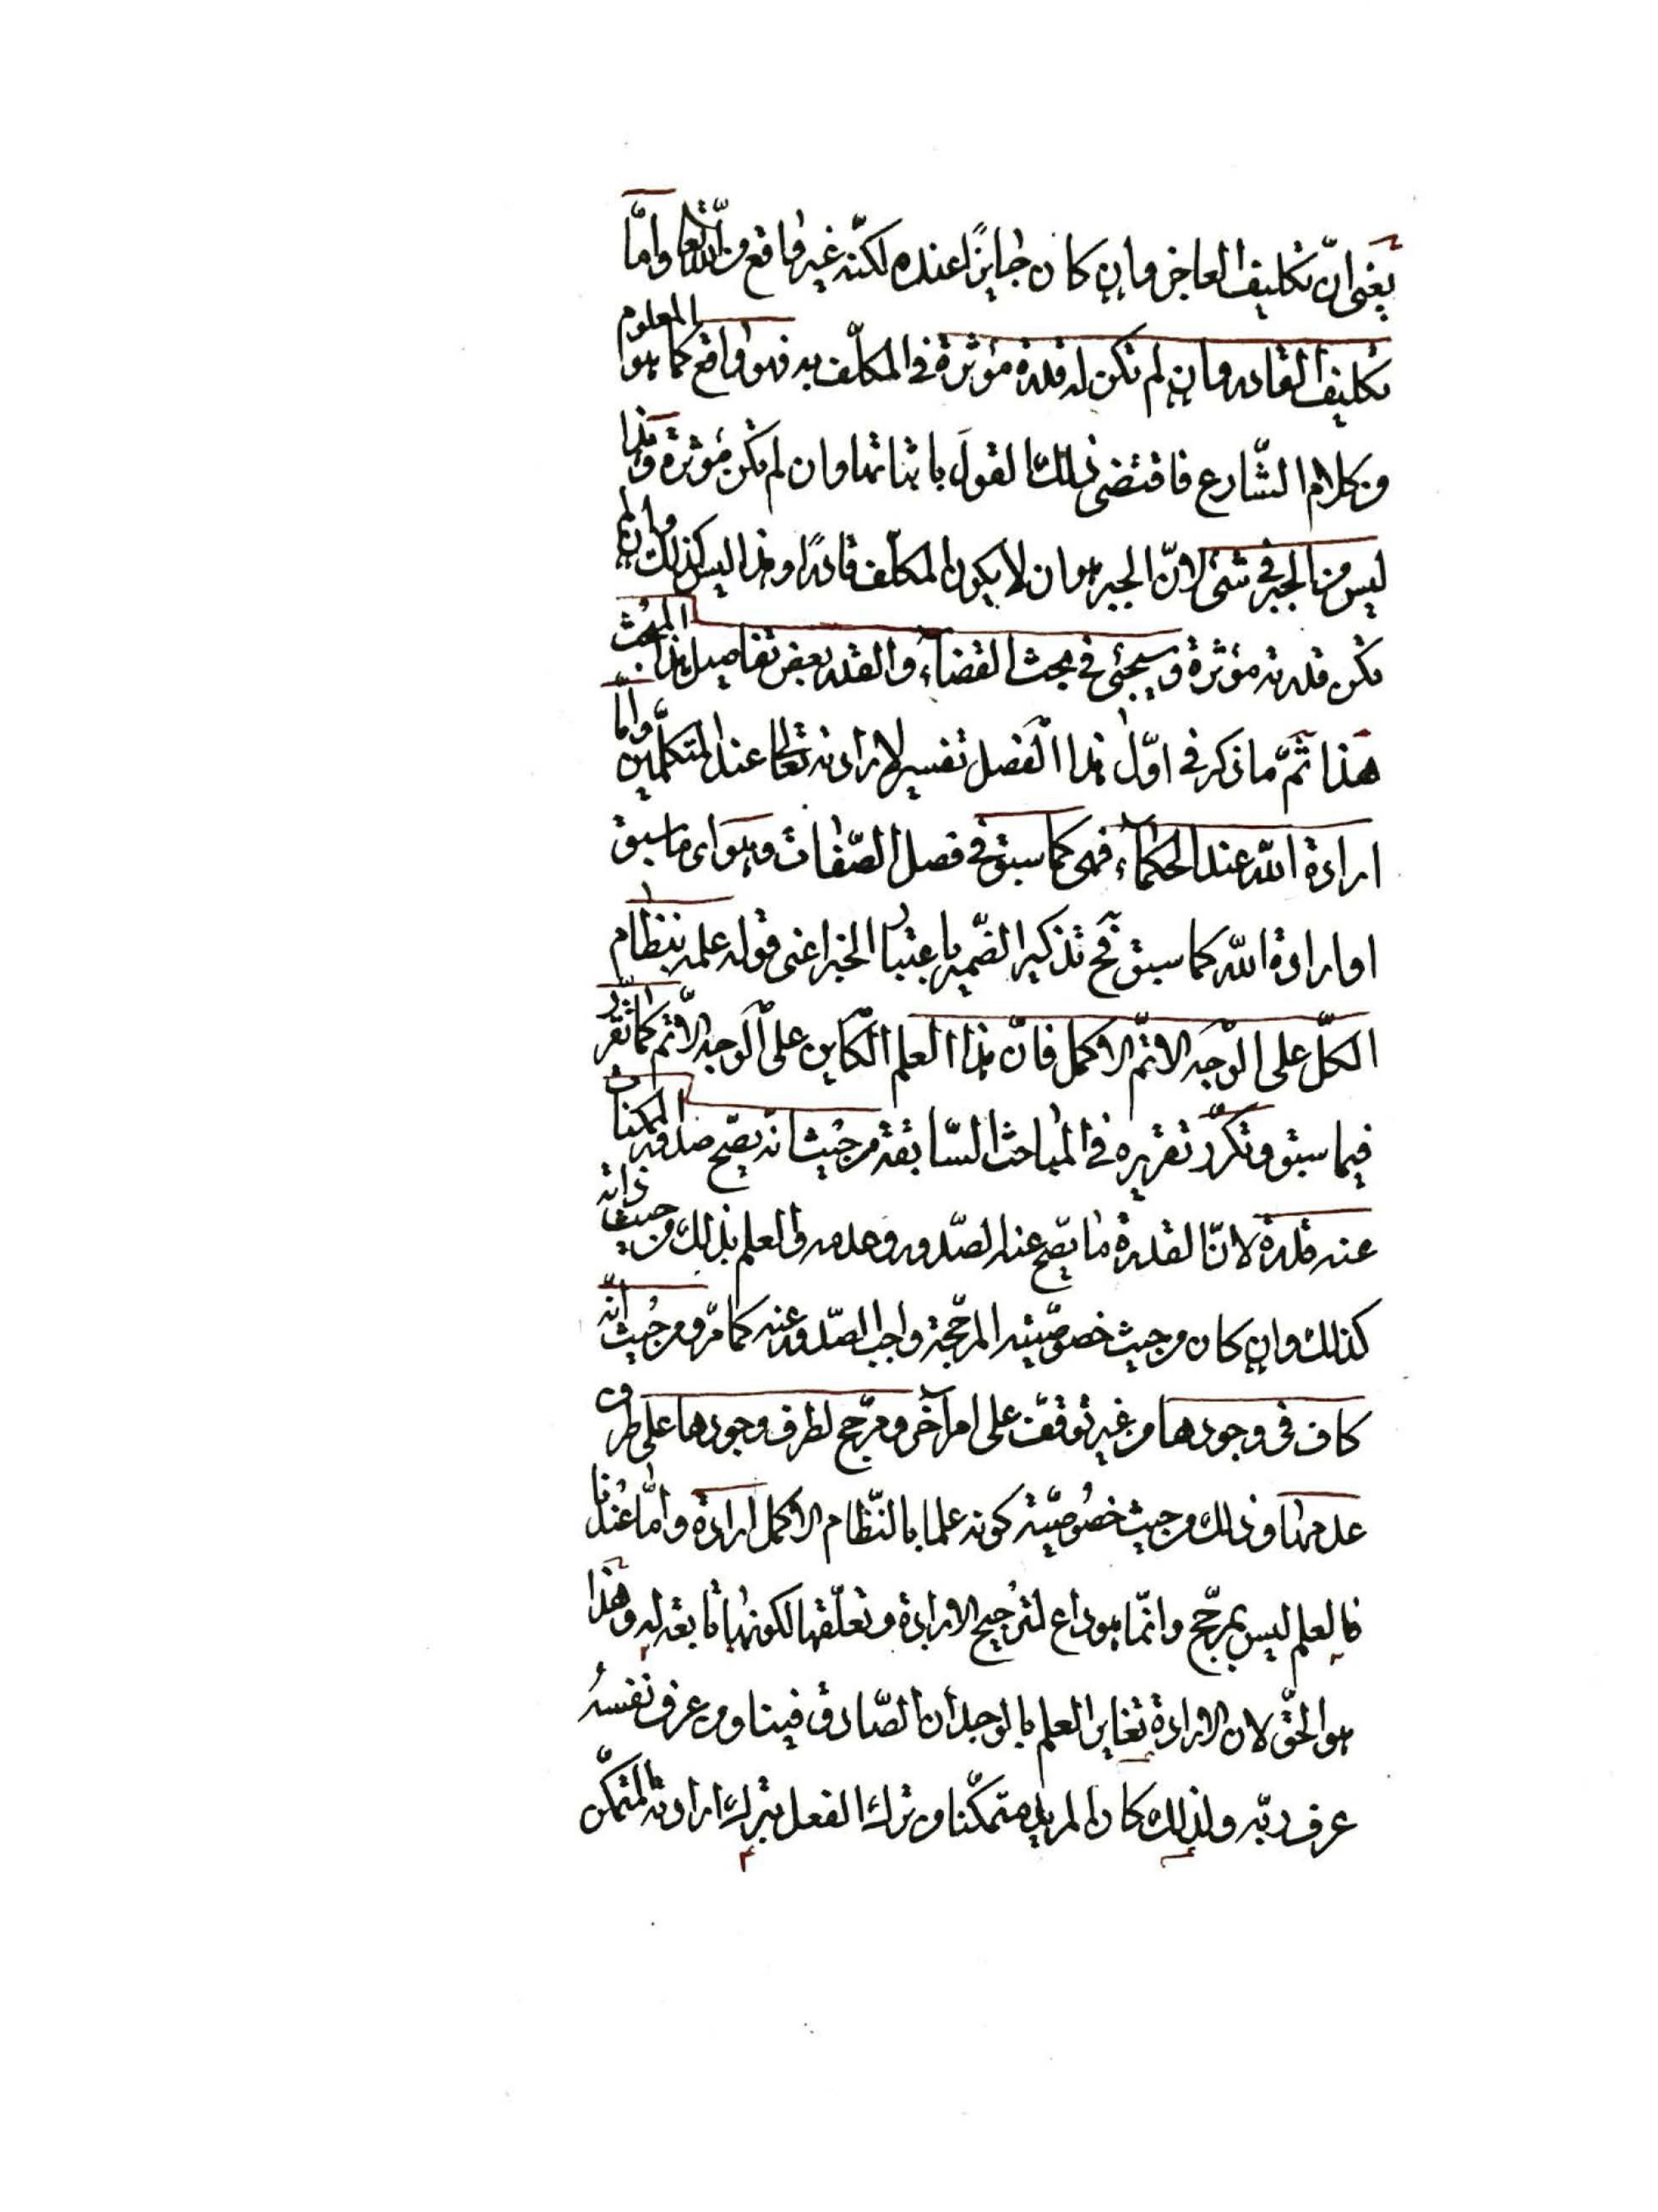 يعنى انّ تكليف العاجز وان كان جايزًا عنده لكنّه غير واقع من الله تعا وامّا
تكليف القادر وان لم تكن له قدرة مؤثرة فى المكلّف به فهو واقع كما هو المعلوم
وبكلام الشّارع فاقتضى ذلك القول باثباتها وان لم تكن مؤثرة وهذا
ليس من الجبر فى شئ لانّ الجبر هو ان لا يكون المكلّف قادرًا وهذا ليس كذلك وان لم
تكن قدرته مؤثرة وسيجئ فى بحث القضاء والقدر بعض تفاصيل هذا المبحث
هذا ثمّ ما ذكر فى اوّل هذا الفصل تفسير لارادته تعالى عند المتكلّمين وامّا
ارادة الله عند الحكماء فهى كما سبق فى فصل الصّفات وهو اى ما سبق
او ارادة الله كما سبق فح تذكير الضّمير باعتبار الخبر اعنى قوله علمه بنظام
الكلّ على الوجه الاتمّ الاكمل فانّ هذا العلم الكاين على الوجه الاتمّ كما تقرّر
فيما سبق وتكرّر تقريره فى المباحث السّابقة من حيث انه يصّح صدور الممكنات
عنه قدرة لانّ القدرة ما يصّح عنه الصّدور وعدمه والعلم بذلك من حيث ذاته
كذلك وان كان من حيث خصوصّيته المرجّحة واجب الصّدور عنه كما مرّ ومن حيث انّه
كاف فى وجودها من غير توقّف على امر آخر ومرجّح لطرف وجودها على طرف
عدمها وذلك من حيث خصوصيّة كونه علما بالنّظام الاكمل ارادة وامّا عندنا
فالعلم ليس بمرجّح وانّما هو داع لترجيح الارادة وتعلّقها لكونها تابعة له وهذا
هو الحقّ لان الارادة تغاير العلم بالوجدان الصّادق فينا ومن عرف نفسه
عرف ربّه ولذلك كان المريد متمكّنا من ترك الفعل بترك ارادته المتمكّن